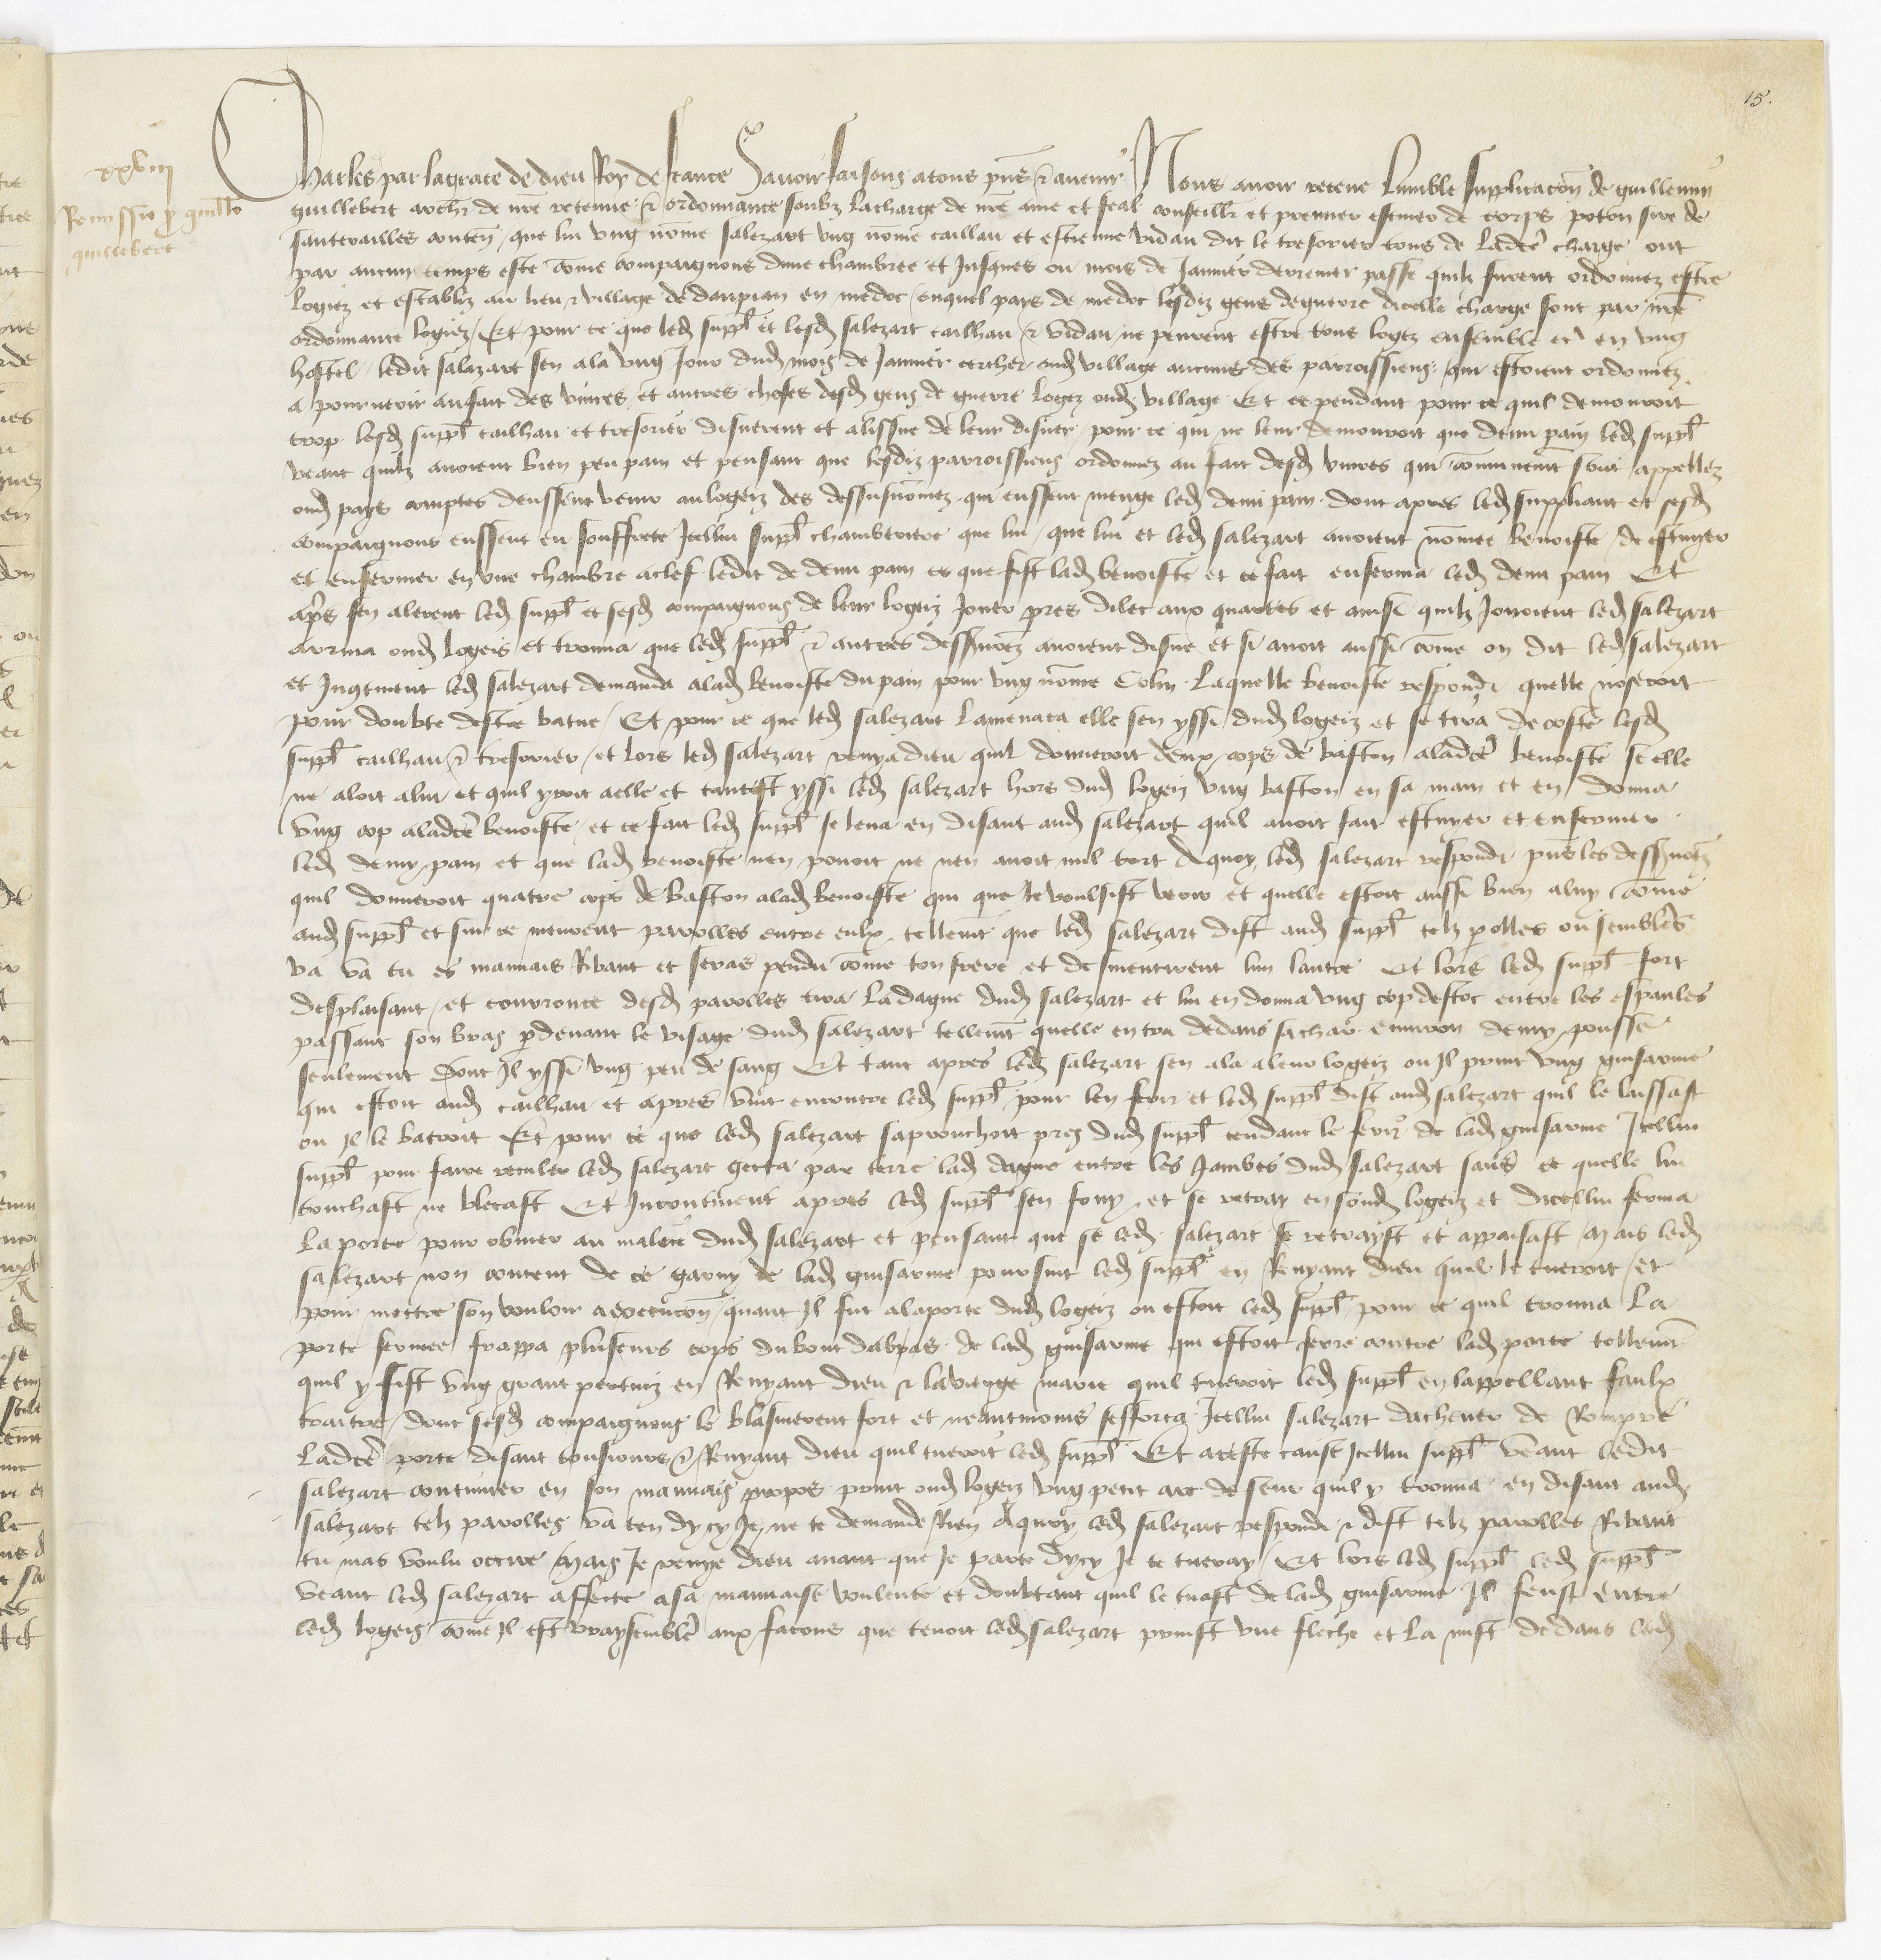 15.
xxviii
Remissio p guill'o
quillebert
Charles par la grace de dieu Roy de france Savoir faisons a tous p̃ns ⁊ avenir Nous avoir receue lumble supplicac̃on de guillemin
quillebert archr̃ de nr̃e retenue ⁊ ordonnance soubz la charge de nr̃e ame et feal conseillr̃ et premier escuier de corps poton sire de
santerailles conten̄ que lui ung nõme salezart ung nõme caillau et estienne vidau dit le tresorier tous de ladcẽ charge ont
par aucun temps este cõme compaignons dune chambree et Jusques ou mois de Janvier derrenier passe quilz furent ordonnez estre
logiez et establiz au lieu ⁊ village de daupian en medoc ouquel pays de medoc lesdiz gens deguerre dicelle charge sont par nr̃e
ordonnance logiez Et pour ce que led suppl̃ et lesd salezart cailhau ⁊ vidau ne peurent estre tous logez ensemble en ung
hostel ledit salezart sen ala ung Jour dud mois de Janvier cercher oud village aucuns des parroissiens qui estoient ordonnez
a pourveoir au fait des vivres et autres choses desd gens de guerre logez oud village Et ce pendant pour ce quil demouroit
trop lesd suppl̃ cailhau et tresorier disnerent et alissue de leur disner pour ce qui ne leur demouroit que demi pain led suppl̃
veant quilz avoient bien peu pain et pensant que lesdiz parroissiens ordonnez au fait desd vivres qui cõmunemt̃ sont appellez
oud pays comptes deussent venir au logeiz des dessusnõmez qui eussent menge led demi pain dont apres led suppliant et sesd
compaignons eussent eu souffrete Icellui suppl̃ chamberiere que lui que lui et led salezart avoient nõmee benoiste de estuyer
et enfermer en une chambre aclef ledit de demi pain ce que fist lad benoiste et ce fait enferma led demi pain Et
ap̃s sen alerent led suppl̃ et sesd compaignons de leur logeiz Jouer pres dilec aux quartes et ainsi quilz Jouoient led salezart
arriva oud logeis et trouva que led suppl̃ ⁊ autres dessusnõez avoient disne et si avoit aussi cõme on dit led salezart
et Incontinent led salezart demanda alad benoiste du pain pour ung nõme Colin Laquelle benoiste respondi quelle noseroit
pour doubte destre batue Et pour ce que led salezart la menaca elle sen yssi dud logeiz et se tira decoste lesd
suppl̃ cailhau ⁊ tresorier et lors led salezart renya dieu quil donneroit deux cops de baston aladcẽ benoiste se elle
ne aloit alui et quil yroit aelle et tantost yssi led salezart hors dud logeiz ung baston en sa main et en donna
ung cop aladcẽ benoiste et ce fait led suppl̃ se leva en disant aud salezart quil avoit fait estuyer et enfermer
led demy pain et que lad benoiste nen povoit ne nen avoit nul tort Aquoy led salezart respondi p̃ns les dessusnõez
quil donneroit quatre cops de baston alad benoiste qui que le voulsist veoir et quelle estoit aussi bien aluy cõme
aud suppl̃ et sur ce meurent parolles entre eulx tellemt̃ que led salezart dist aud suppl̃ telz p̃olles ou semblẽs
va va tu es mauvais Ribaut et seras pendu cõme ton frere et desmentirent lun lautre Et lors led suppl̃ fort
desplaisant et courrouce desd parolles tira la dague dud salezart et lui en donna ung cop destoc entre les espaules
passant son bras p̃devant le visage dud salezart tellemt̃ quelle entra dedans sachar environ demy pousse
seulement dont Jl yssi ung peu de sang Et tant apres led salezart sen ala aleur logeiz ou Jl print ung guisarme
qui estoit aud cailhau et apres vint encontre led suppl̃ pour len ferir et led suppl̃ dist aud salezart quil le laissast
ou Jl le batroit Et pour ce que led salezart sapprouchoit pres dud suppl̃ cuidant le ferir de lad guisarme Icellui
suppl̃ pour faire reculer led salezart gecta par terre lad dague entre les Jambes dud salezart sans ce quelle lui
touchast ne blecast Et Incontinent apres led suppl̃ sen fouy et se retray en sond logeiz et dicellui ferma
la porte pour obvier au malice dud salezart et pensant que se led salezart se retrayst et appaisast Mais led
salezart non content de ce garny de lad guisarme poursuit led suppl̃ en Renyant dieu quil le tueroit et
pour mettre son vouloir aexecuc̃on quant Jl fut alaporte dud logeiz ou estoit led suppl̃ pour ce quil trouva la
porte fermee frappa plusieurs cops du bout dabas de lad guisarme qui estoit ferre contre lad porte tellemt̃
quil y fist ung grant pertuiz en Renyant dieu ⁊ lavierge marie quil tueroit led suppl̃ en lappellant faulx
traitre dont sesd compaignons le blasmerent fort et neantmoins sefforca Icellui salezart dachever de Rompre
ladcẽ porte disant tousiours ⁊ Renyant dieu quil tueroit led suppl̃ Et aceste cause Icellui suppl̃ veant ledit
salezart continuer en son mauvais propos print oud logeiz ung petit arc de seur quil y trouva en disant aud
salezart telz parolles va ten dycy Je ne te demande Rien Aquoy led salezart respondi ⁊ dist telz parolles Ribaut
tu mas voulu occire Mais Je renye dieu avant que Je parte dycy Je te tueray Et lors led suppl̃ led suppl̃
veant led salezart afferte asa mauvaise voulente et doubtant quil le tuast de lad guisarme Jl feust entre
led logeis cõme Jl est vraysemblẽ aux facons que tenoit led salezart prinst une fleche et la mist dedans led